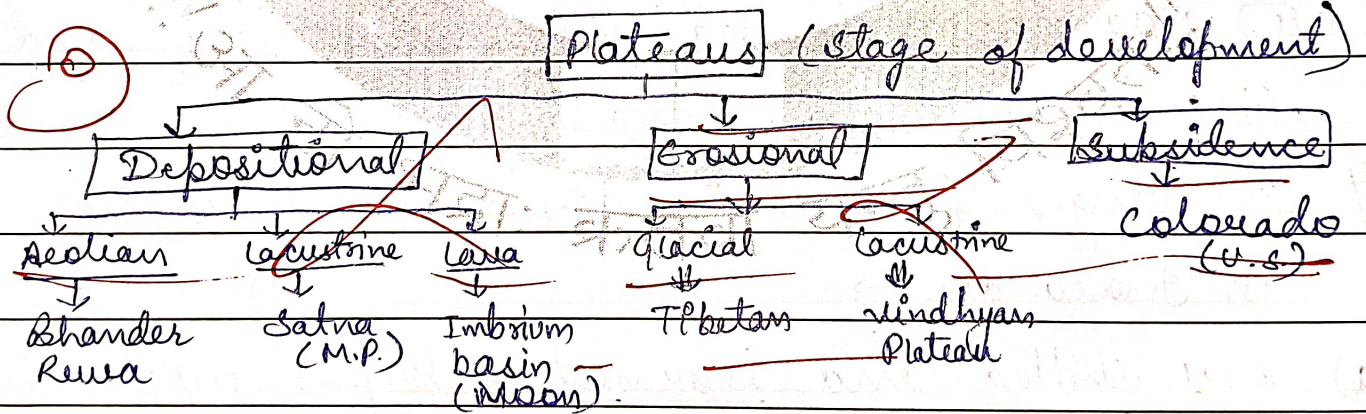 Plateaus (stage of development)
Depositional Erosional Subsidence
Aeolian Lacustrine Lava Glacial Lacustrine Colorado
(U.S.)
Bhander Satna Imbrium Tibetan Vindhyan
Rewa (M.P.) basin Plateau
(Moon).